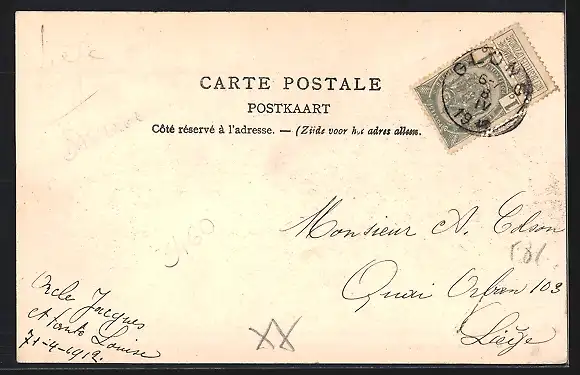 CARTE POSTALE
POSTKAART
Côté réservé à l'adresse. — (Zijde voor het adres alleen.
GLONS
6-
8
IV
19
Monsieur A. Edson
Quai Orban 103
Liège
Oncle Jacques
et tante Louise
7-4-1912.